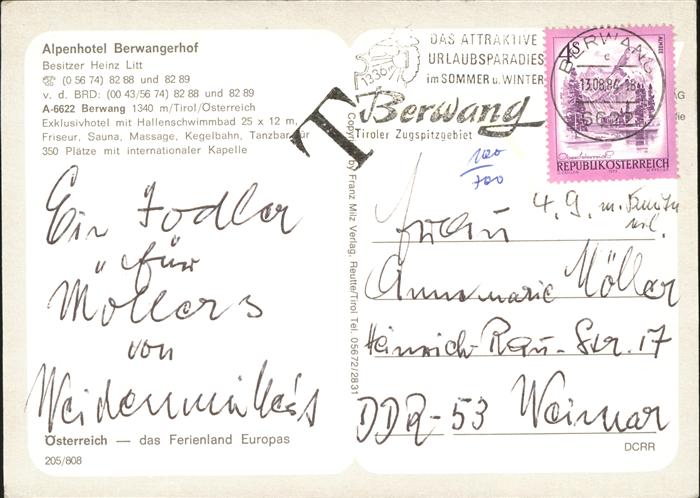 Alpenhotel Berwangerhof
Besitzer Heinz Litt
☎ (0 56 74) 82 88 und 82 89
v. d. BRD: (00 43/56 74) 82 88 und 82 89
A-6622 Berwang 1340 m/Tirol/Österreich
Exklusivhotel mit Hallenschwimmbad 25 x 12 m,
Friseur, Sauna, Massage, Kegelbahn, Tanzbar für
350 Plätze mit internationaler Kapelle
Ein Jodler
für
Möllers
von
Weidenmüllers
Österreich — das Ferienland Europas
205/808
T
Copyright by Franz Milz Verlag, Reutte/Tirol Tel. 05672/2831
DAS ATTRAKTIVE
URLAUBSPARADIES
im SOMMER u. WINTER
1336m
Berwang
Tiroler Zugspitzgebiet
BERWANG
13.08.84-18
6622
ALMSEE
REPUBLIK ÖSTERREICH
100
700
4. 9. m.
Annemarie Möller
Heinrich-Rau-Str. 17
DDR-53 Weimar
DCRR